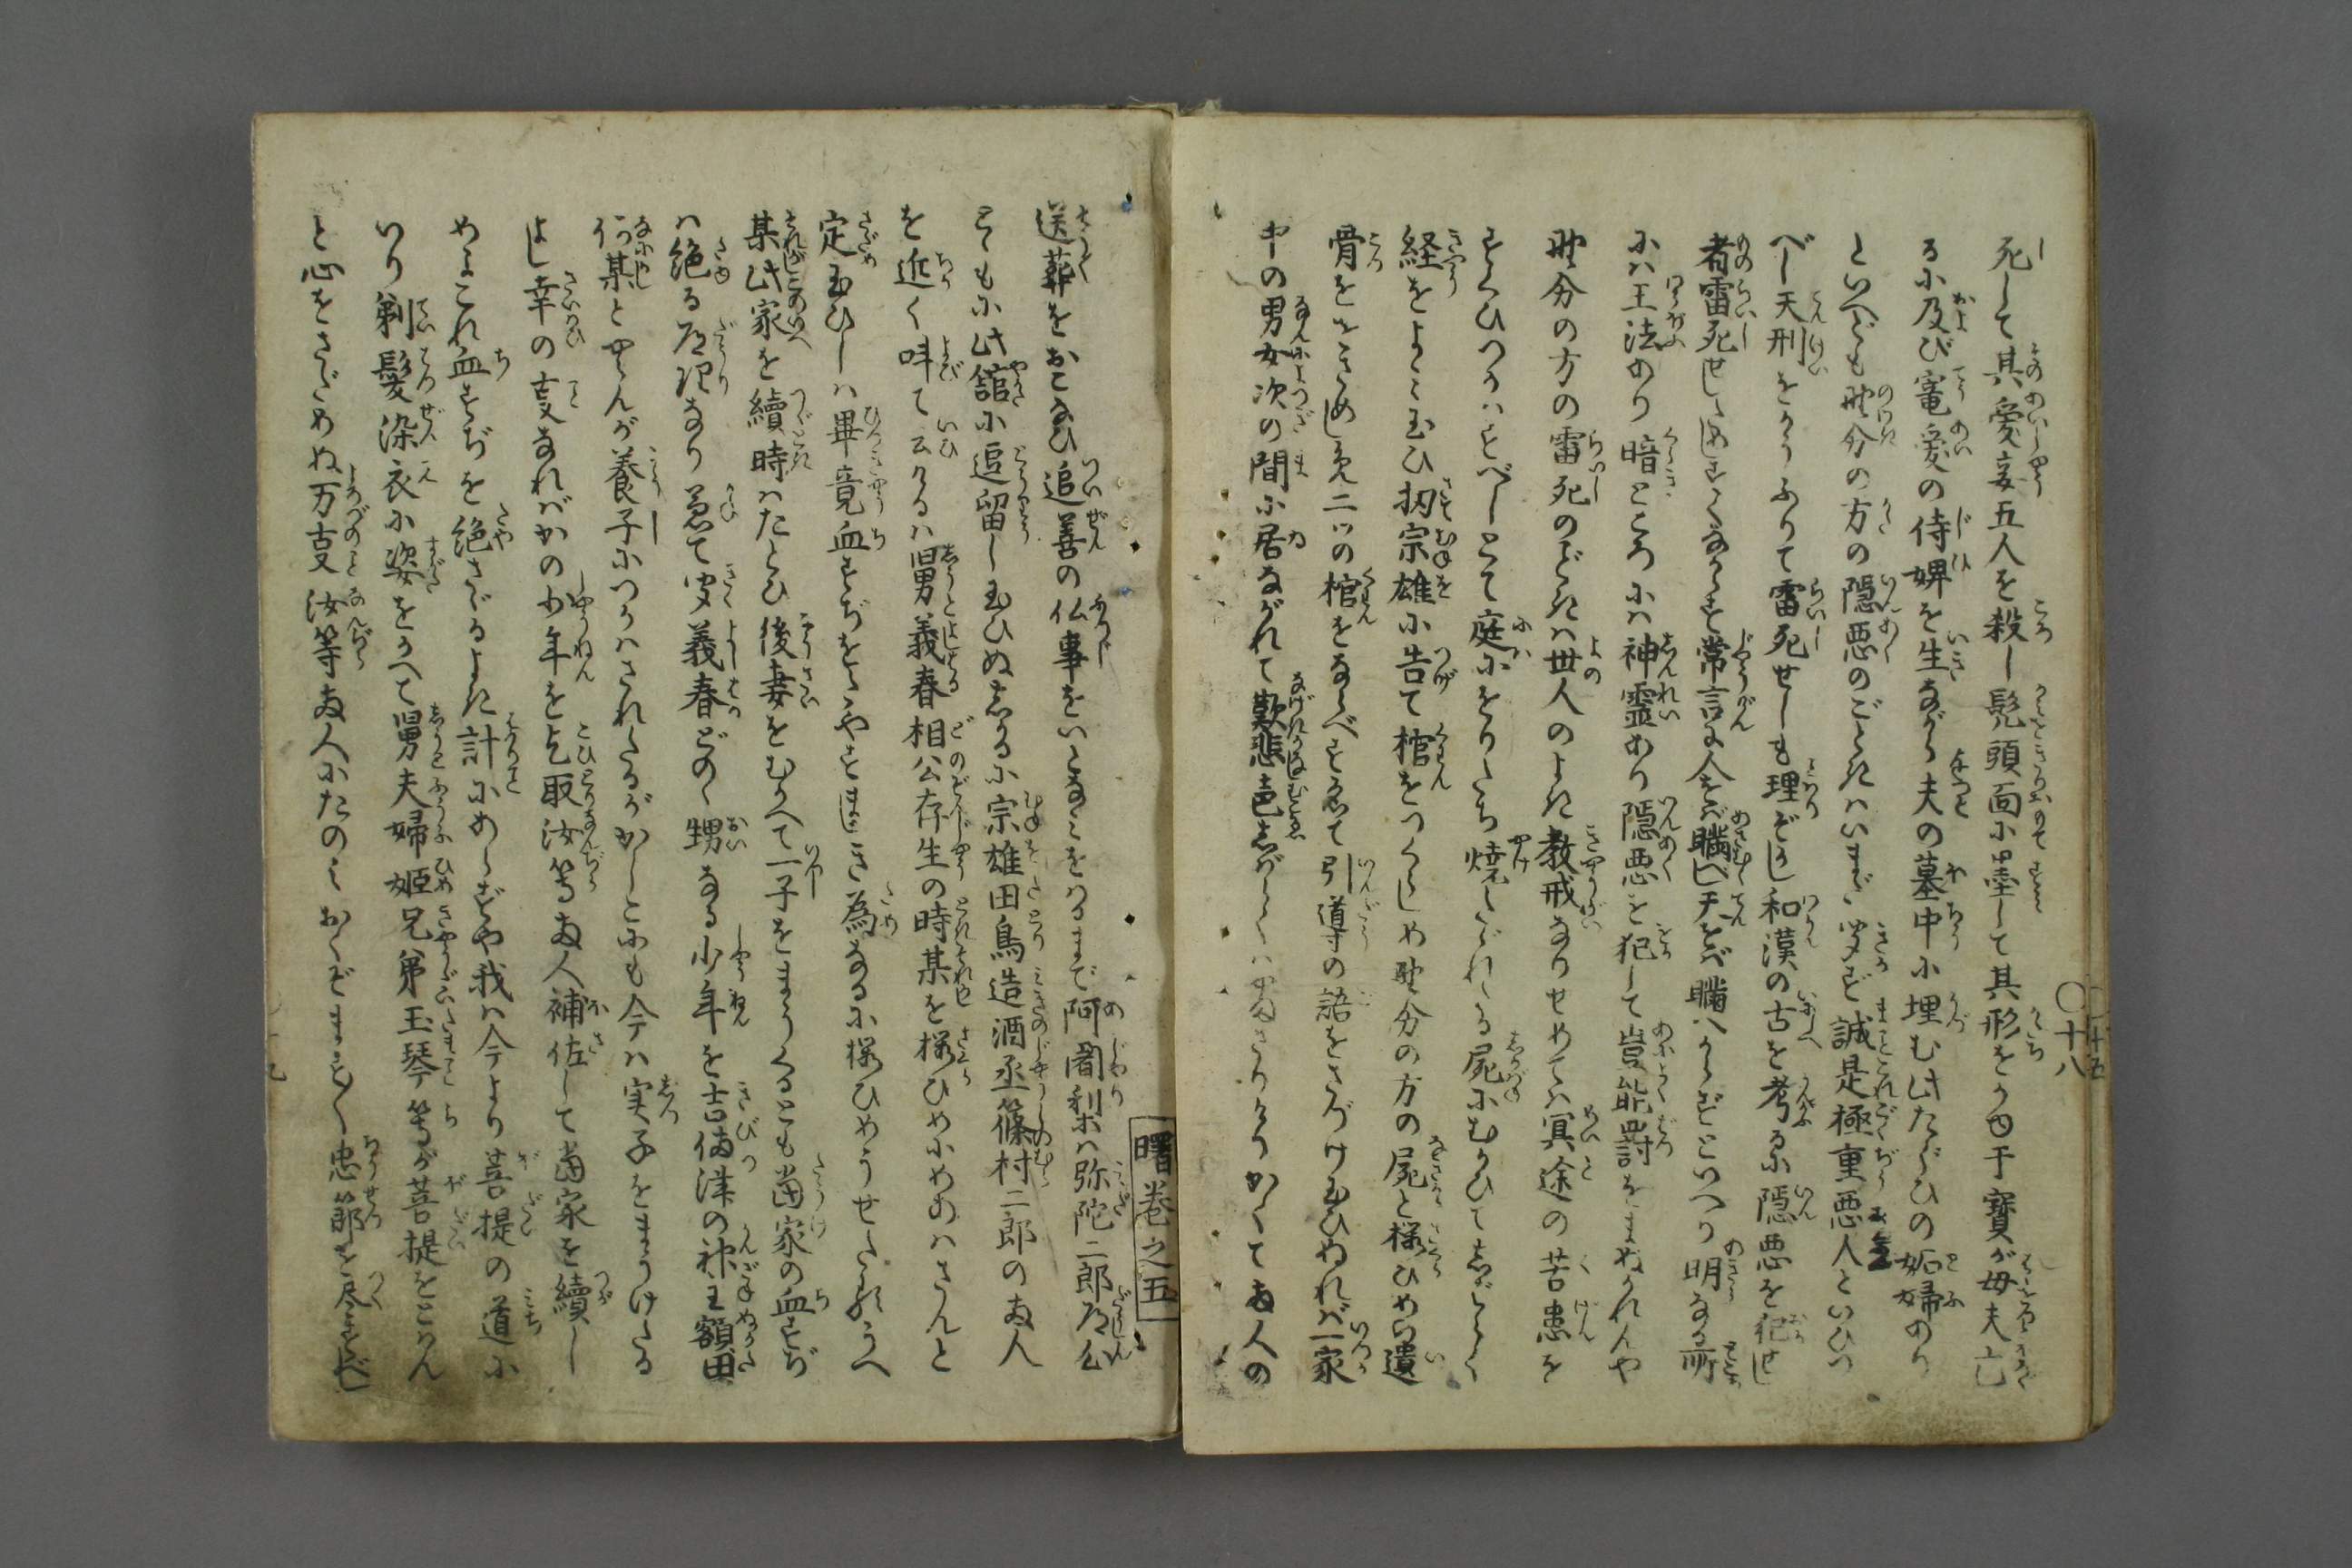 死して其愛妾五人を殺し髡頭面に墨して其形をかへ干寳が母夫亡
るに及び寵愛の侍婢を生ながら夫の墓中に埋む此たぐひの妬婦あり
といへども野分の方の隠悪のごときはいまだ聞ず誠是極重悪人といひつ
べし天刑をかうふりて雷死せしも理ぞかし和漢の古を考るに隠悪を犯せし
者雷死せしためしすくなからず常言に人をば瞞べし天をば瞞べからずといへり明なる所
には王法あり暗ところには神霊あり隠悪を犯して豈能罸をまぬかれんや
野分の方の雷死のごときは世人のよき教戒なりせめては冥途の苦患を
すくひつかはすべしとて庭にをりたち焼たゞれたる屍にむかひてしばらく
経をよみ玉ひ扨宗雄に告て棺をつくらしめ野分の方の屍と桜ひめの遺
骨ををさめしめ二ツの棺をならべすゑて引導の語をさづけ玉ひぬれば一家
中の男女次の間に居ながれて歎悲声しばらくはやまざりけりかくて両人の
送葬をおこなひ追善の仏事をいとなみをはるまで阿闍梨は弥陀二郎道心
ともに此舘に逗留し玉ひぬしかるに宗雄田鳥造酒丞篠村二郎の両人
を近く呼て云けるは舅義春相公存生の時某を桜ひめにめあはさんと
定玉ひしは畢竟血すぢをたやすまじき為なるに桜ひめうせたるうへ
某此家を續時はたとひ後妻をむかへて一子をまうくるとも當家の血すぢ
は絶る道理なり兼て聞義春どのゝ甥なる少年を吉備津の神主額田
何某とやらんが養子につかはされたるがかしこにも今は実子をまうけたる
よし幸の事なればかの少年を乞取汝等両人補佐して當家を續し
めよこれ血すぢを絶さゞるよき計にあらずや我は今より菩提の道に
いり剃髪染衣に姿をかへて舅夫婦姫兄弟玉琴等が菩提をとはん
と心をさだめぬ万事汝等両人にたのみおくぞまうし忠節を尽すべし
曙巻之五
〇十八